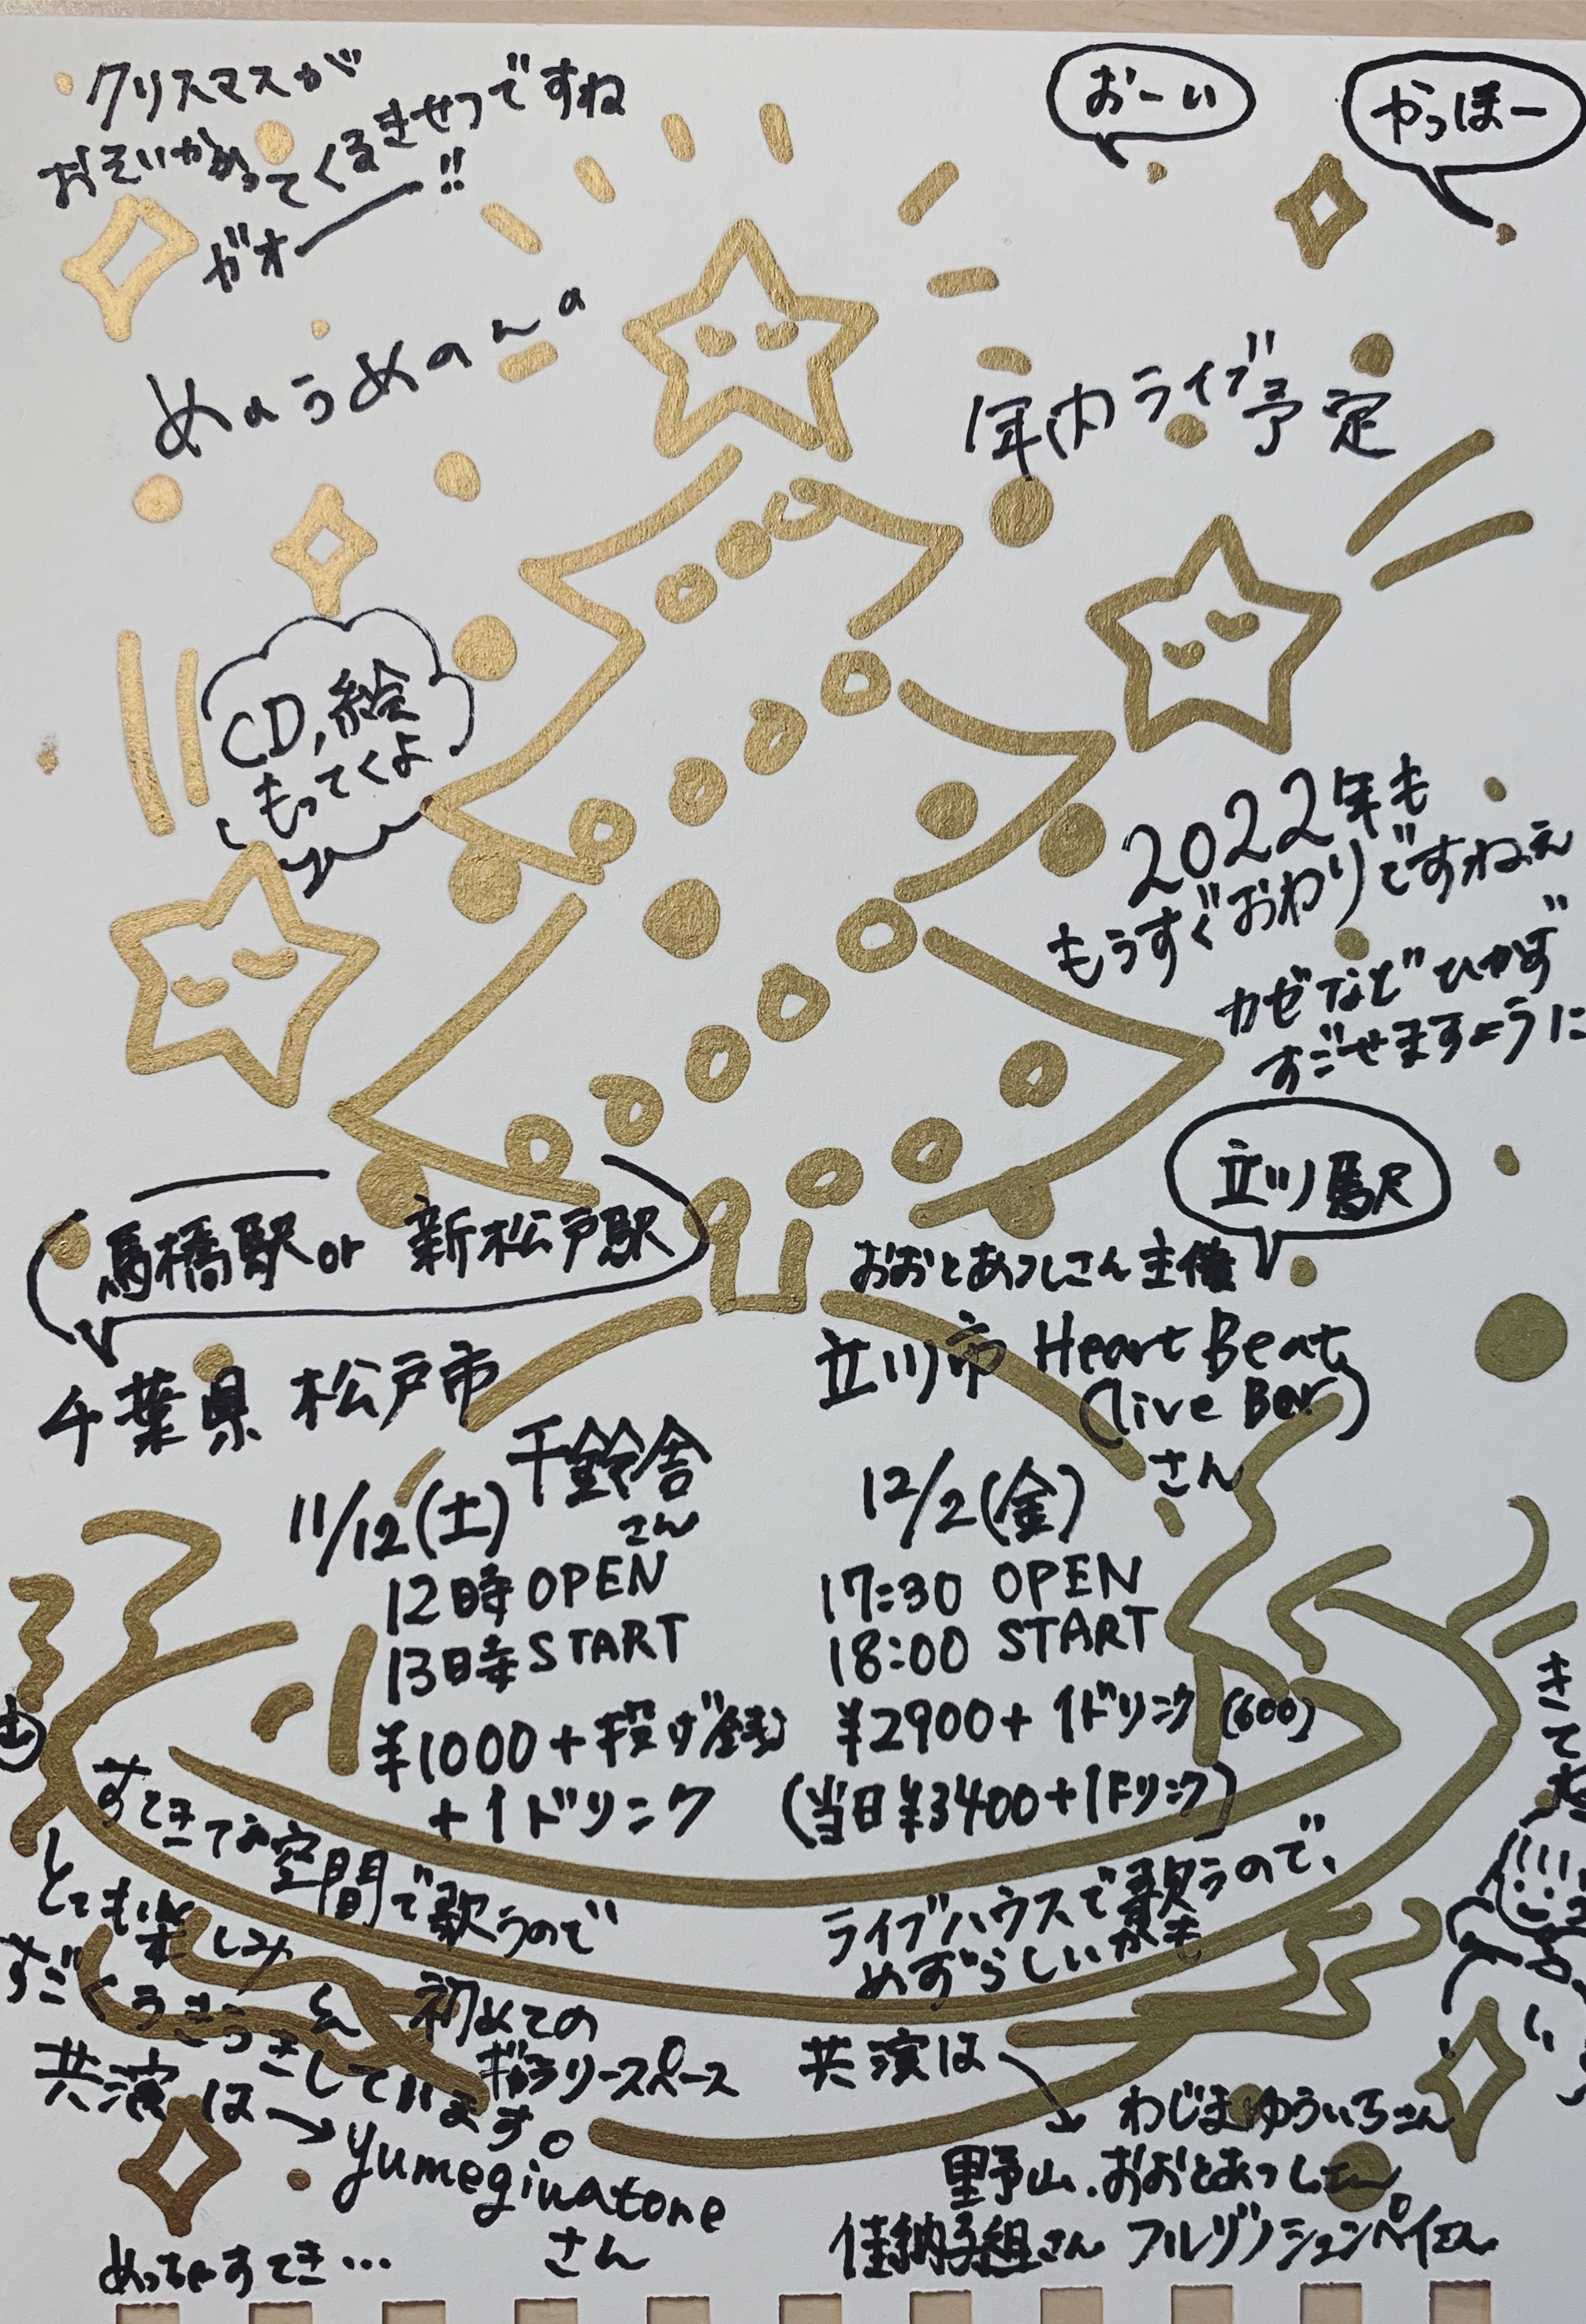 クリスマスが
おそいかかってくるきせつですね
ガオー!!
おーい
やっほー
年内ライブ予定
CD,絵
もってくよ
2022年も
もうすぐおわりですねえ
カゼなどひかず
すごせますように
馬橋駅or新松戸駅
千葉県 松戸市
千鈴舎
さん
11/12(土)
12時OPEN
13時START
¥1000+投げ銭
+1ドリンク
すてきな空間で歌うので
とても楽しみ
初めての
ギャラリースペース
すごくうきうきしています。
共演は→
yumeginatone
さん
めっちゃすてき…
立川駅
おおとあつしさん主催
立川市 Heart Beat
(live Bar)
さん
12/2(金)
17:30 OPEN
18:00 START
¥2900+1ドリンク(600)
(当日¥3400+1ドリンク)
ライブハウスで歌うので、
めずらしいかも
共演は
わじまゆういちさん
野山.おおとあつしさん
佳納子組さん
きて